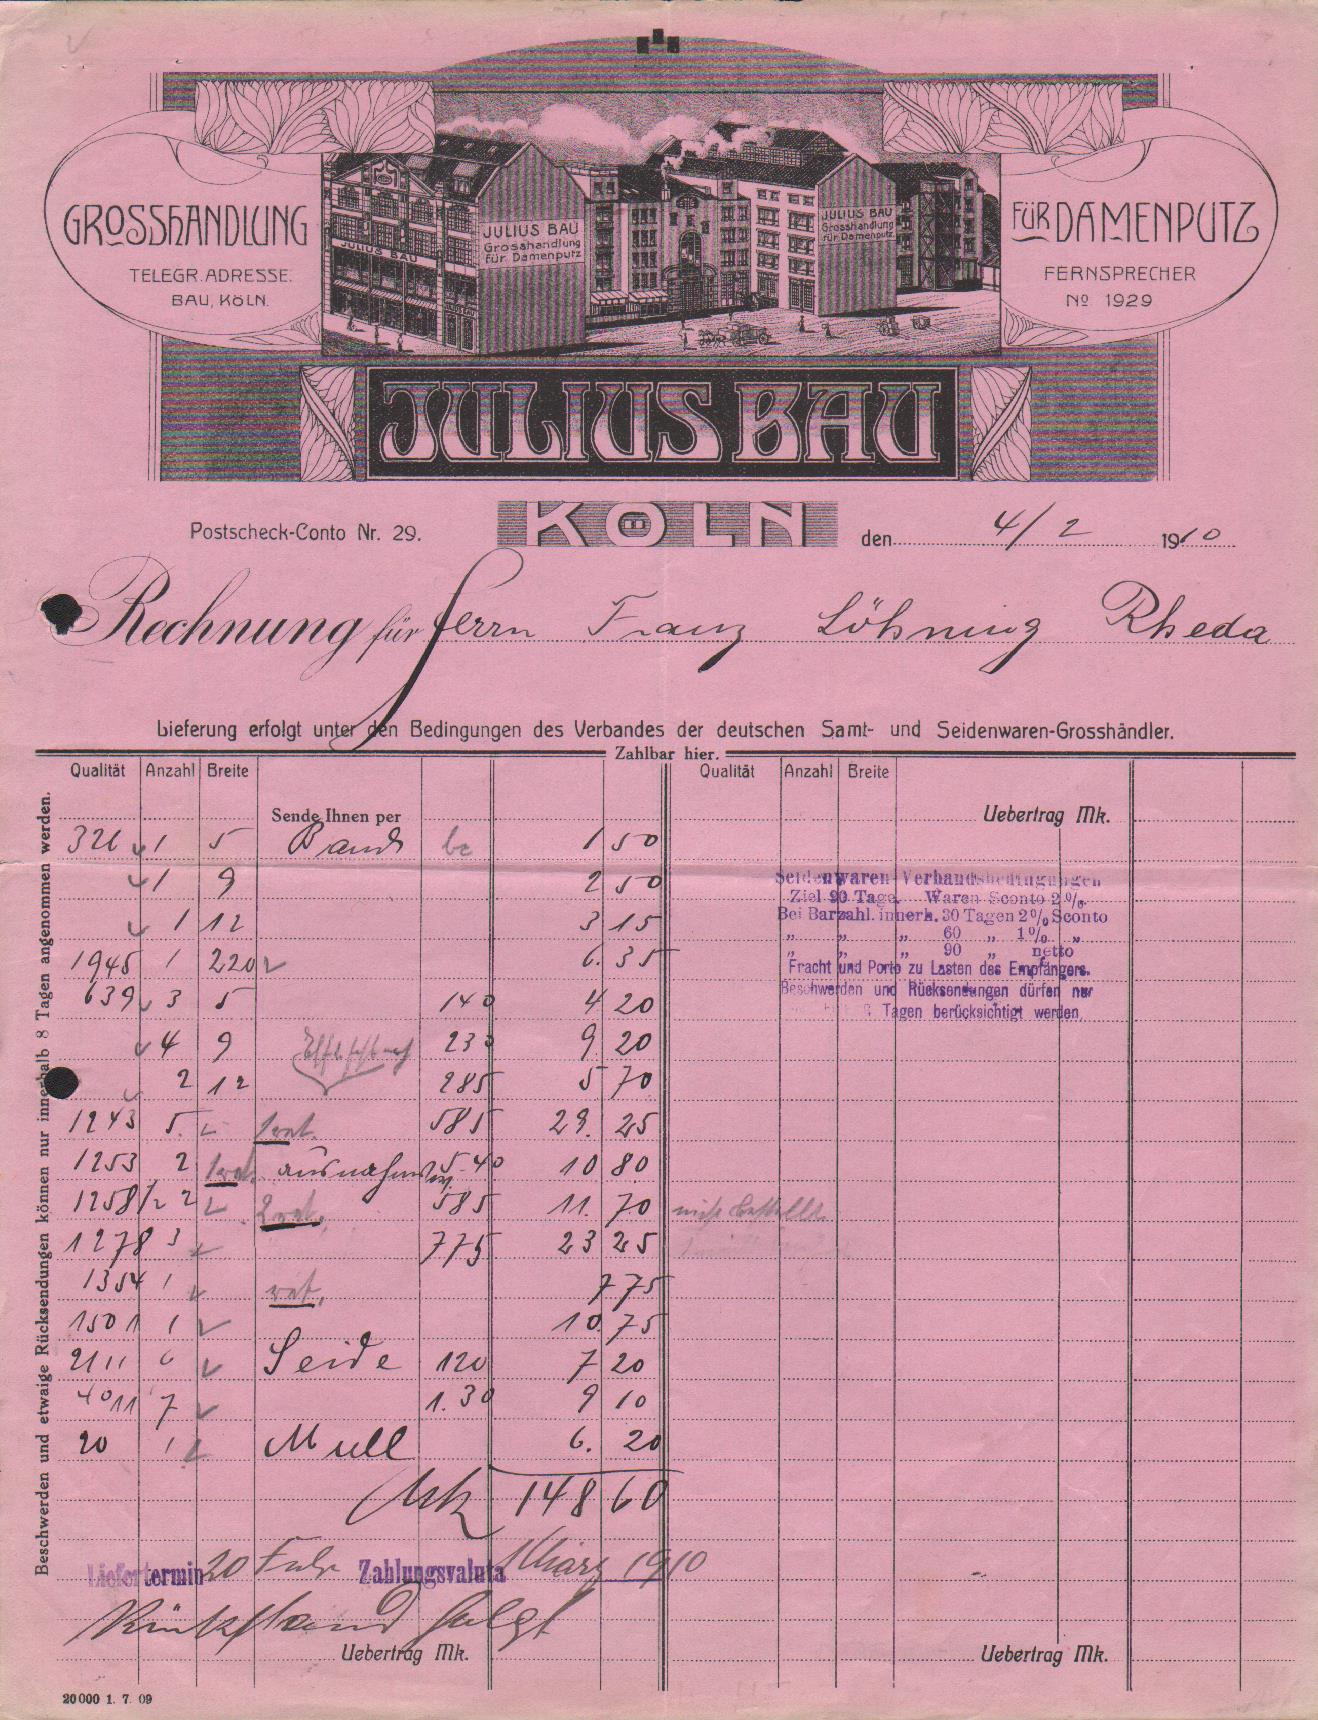 GROSSHANDLUNG
TELEGR. ADRESSE:
BAU, KÖLN.
FÜR DAMENPUTZ
FERNSPRECHER
No 1929
JULIUS BAU
JULIUS BAU
Grosshandlung
für Damenputz
JULIUS BAU
Grosshandlung
für Damenputz
JULIUS BAU
Postscheck-Conto Nr. 29.
KÖLN
den 4/2 1910
Rechnung für Herrn Franz Löhning Rheda
Lieferung erfolgt unter den Bedingungen des Verbandes der deutschen Samt- und Seidenwaren-Grosshändler.
Zahlbar hier.
Qualität Anzahl Breite Qualität Anzahl Breite
Sende Ihnen per Uebertrag Mk.
321 1 5 Band 1 50
1 9 2 50
1 12 3 15
1945 1 220 6. 35
639 3 5 140 4 20
4 9 230 9 20
2 12 285 5 70
1243 5. 585 29. 25
1253 2 5.40 10 80
1258/2 2 585 11. 70
1278 3 775 23 25
1354 1 7 75
1501 1 10. 75
2111 6 Seide 120 7 20
4011 7 1.30 9 10
20 1 Mull 6. 20
Mk 148 60
Liefertermin 20 Febr Zahlungsvaluta 1 März 1910
Rückstand folgt
Uebertrag Mk. Uebertrag Mk.
Seidenwaren-Verbandsbedingungen
Ziel 90 Tage. Waren Sconto 2%.
Bei Barzahl. innerh. 30 Tagen 2% Sconto
„ „ „ 60 „ 1% „
„ „ „ 90 „ netto
Fracht und Porto zu Lasten des Empfängers.
Beschwerden und Rücksendungen dürfen nur
8 Tagen berücksichtigt werden.
Beschwerden und etwaige Rücksendungen können nur innerhalb 8 Tagen angenommen werden.
20000 1. 7. 09